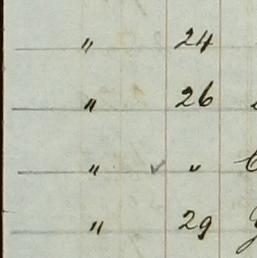 " 24
" 26
" ✓ "
" 29